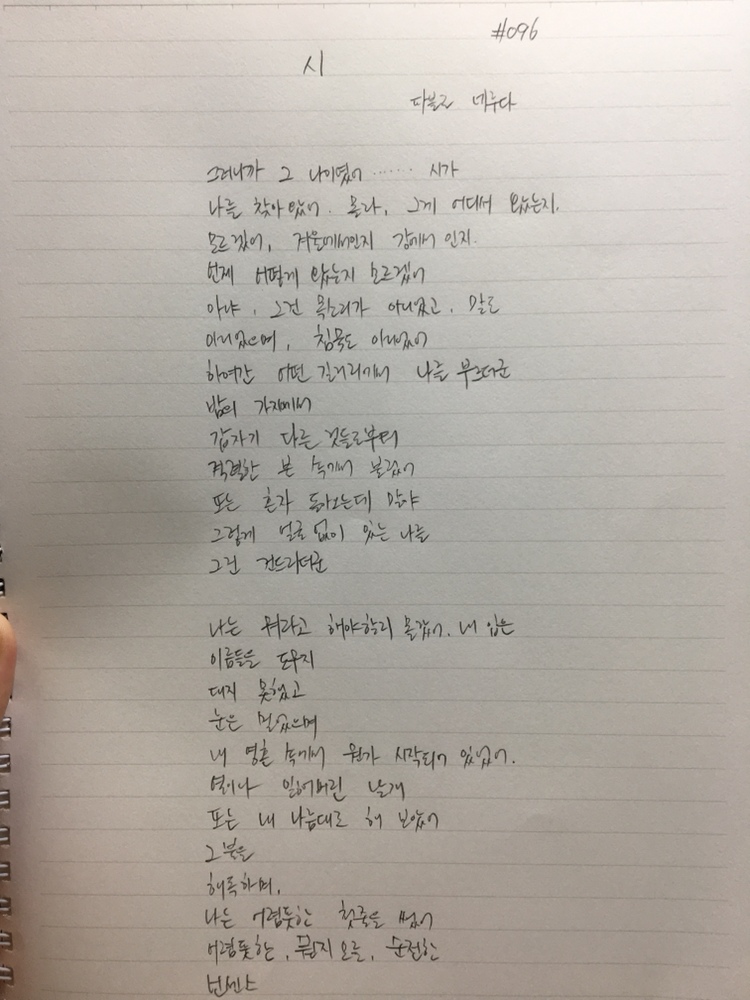 #096
시
파블로 네루다
그러니까 그 나이였어 …… 시가
나를 찾아 왔어. 몰라, 그게 어디서 왔는지.
모르겠어, 겨울에서인지 강에서 인지.
언제 어떻게 왔는지 모르겠어
아냐, 그건 목소리가 아니었고, 말도
아니었으며, 침묵도 아니었어
하여간 어떤 길거리에서 나를 부르더군
밤의 가지에서
갑자기 다른 것들로부터
격렬한 불 속에서 불렀어
또는 혼자 돌아오는데 말야
그렇게 얼굴 없이 있는 나를
그건 건드리더군
나는 뭐라고 해야할지 몰랐어. 내 입은
이름들을 도무지
대지 못했고
눈은 멀었으며
내 영혼 속에서 뭔가 시작되어 있었어.
열이나 잃어버린 날개
또는 내 나름대로 해 보았어
그 불을
해독하며,
나는 어렴풋한 첫줄을 썼어
어렴풋한, 뭔지 모를, 순전한
넌센스